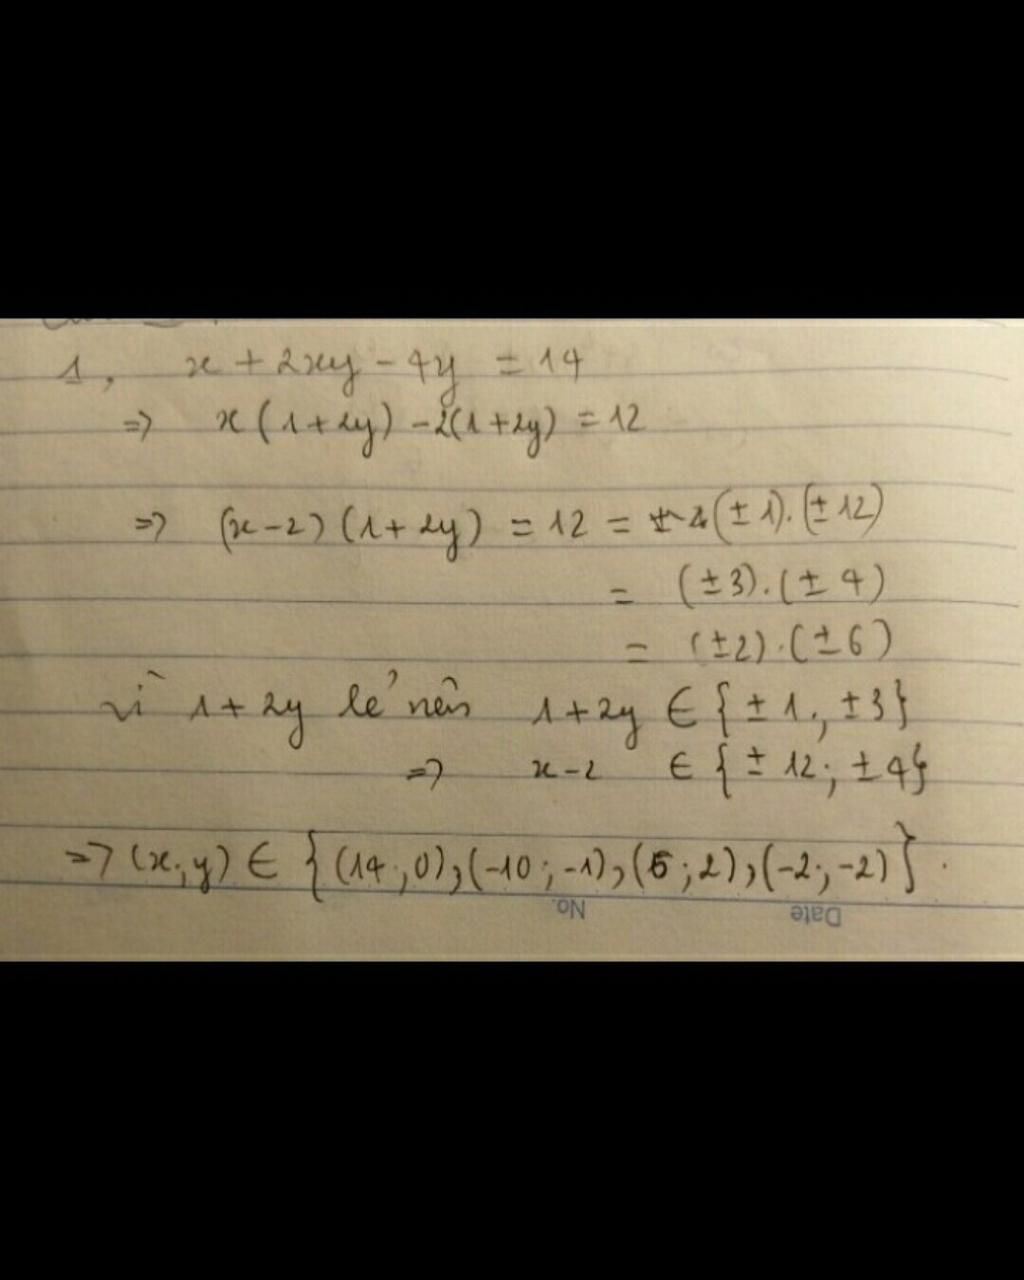 1, x + 2xy - 4y = 14
=> x(1+2y) -2(1+2y) = 12
=> (x-2)(1+2y) = 12 = (±1).(±12)
= (±3).(±4)
= (±2).(±6)
vì 1+2y lẻ nên 1+2y ∈ {±1; ±3}
=> x-2 ∈ {±12; ±4}
=> (x;y) ∈ {(14;0);(-10;-1);(5;2);(-2;-2)}.
No. Date